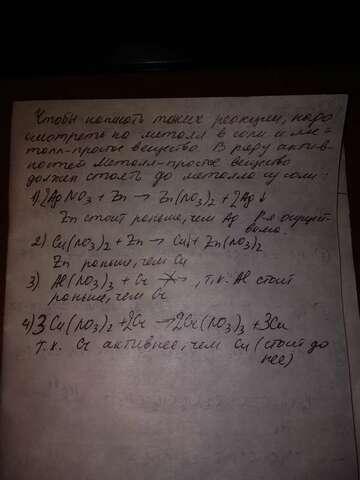 Чтобы написать такие реакции, надо
смотреть на металл в соли и ме-
талл-простое вещество. В ряду актив-
ностей металл-простое вещество
должен стоять до металла из соли:
1) 2AgNO3 + Zn → Zn(NO3)2 + 2Ag↓
Zn стоит раньше, чем Ag Р-я осущест-
вима.
2) Cu(NO3)2 + Zn → Cu↓ + Zn(NO3)2
Zn раньше, чем Cu
3) Al(NO3)3 + Cr ↛, т.к. Al стоит
раньше, чем Cr
4) 3Cu(NO3)2 + 2Cr → 2Cr(NO3)3 + 3Cu
т.к. Cr активнее, чем Cu (стоит до
нее)